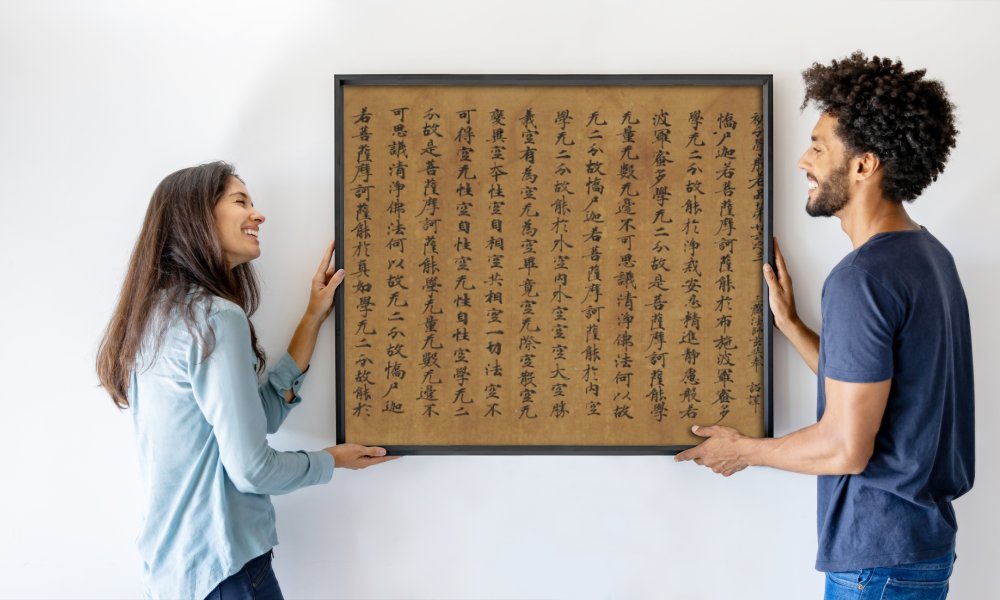 分學般若品第 法師玄奘奉 詔譯
憍尸迦若菩薩摩訶薩能於布施波羅蜜多
學无二分故能於淨戒安忍精進靜慮般若
波羅蜜多學无二分故是菩薩摩訶薩能學
无量无數无邊不可思議清淨佛法何以故
无二分故憍尸迦若菩薩摩訶薩能於內空
學无二分故能於外空內外空空空大空勝
義空有為空无為空畢竟空无際空散空无
變異空本性空自相空共相空一切法空不
可得空无性空自性空无性自性空學无二
分故是菩薩摩訶薩能學无量无數无邊不
可思議清淨佛法何以故无二分故憍尸迦
若菩薩摩訶薩能於真如學无二分故能於